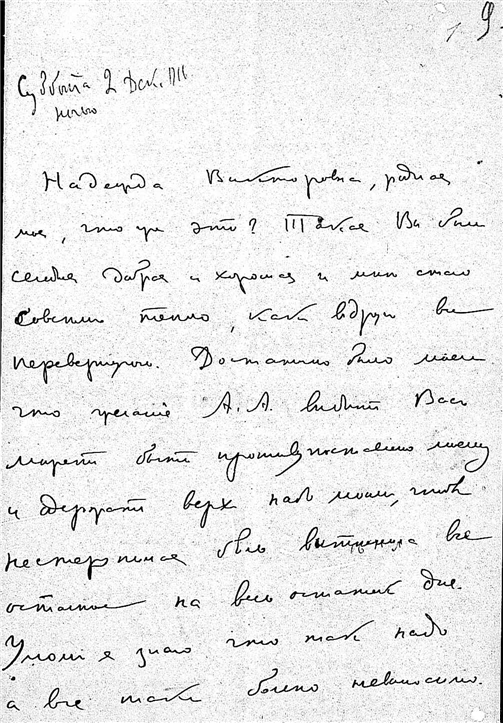 9
Суббота 2 Дек. 1911
ночью
Надежда Викторовна, родная
моя, что же это? Такая Вы были
сегодня добрая и хорошая и мне стало
совсем тепло, как вдруг все
перевернулось. Достаточно было
что желание А.А. видеть Васъ
может быть противупоставлено моему
и одержать верх надъ моим, чтоб
нестерпимая боль вытеснила все
остальное на весь остаток дня.
Умом я знаю что так надо
а все таки больно невыносимо.